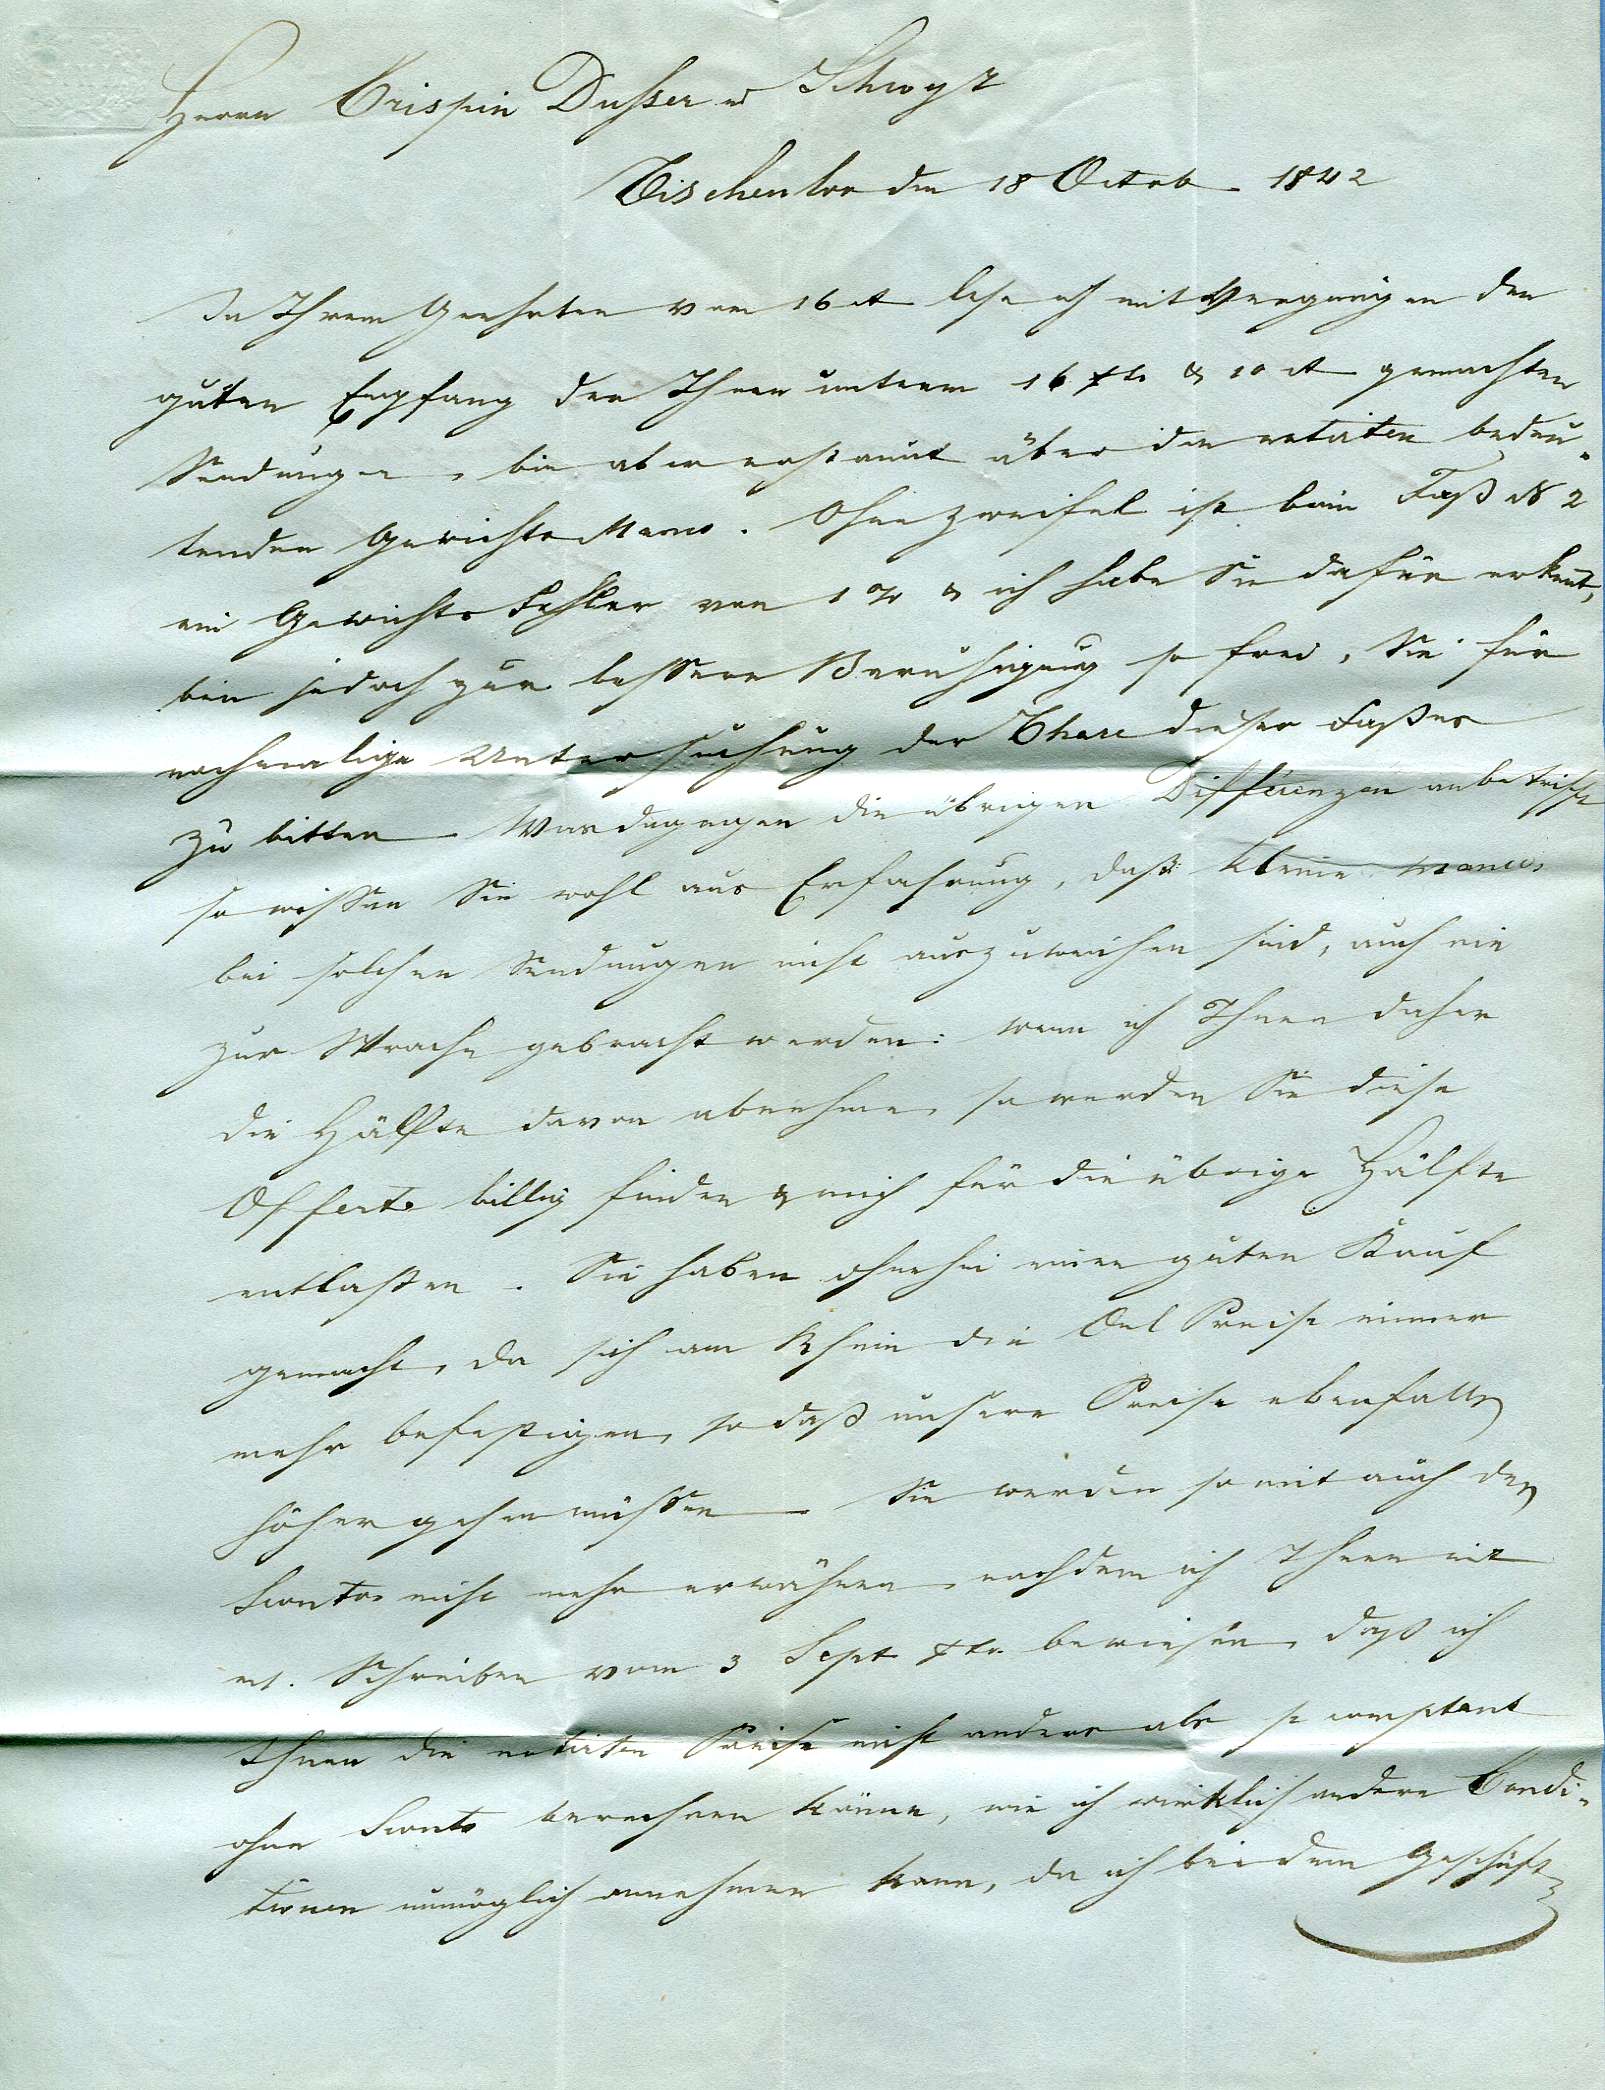 Herrn Crispin Dusser in Schwyz
den 18 Octob. 1842
In Ihrem Geehrten vom 16 ct lese ich mit Vergnügen den
guten Empfang der Ihnen unterm 16 & 10 ct gemachten
Sendungen, bin aber erstaunt über den notirten bedeu-
tenden Gewichts Manco. Ohne Zweifel ist beim Faß N 2
ein Gewichts Fehler von 1 & ich habe Sie dafür erkent,
bin jedoch zur bessern Beruhigung so frei, Sie für
nochmalige Untersuchung der Thare dieses Faßes
zu bitten. Was dagegen die übrigen Differenzen anbetrifft
so wissen Sie wohl aus Erfahrung, daß kleine Mancos
bei solchen Sendungen nicht auszuweichen sind, auch nie
zur Sprache gebracht werden: wenn ich Ihnen daher
die Hälfte davon abnehme, so werden Sie diese
Offerte billig finden & mich für die übrige Hälfte
entlaßen. Sie haben ohnehin einen guten Kauf
gemacht, da sich am Rhein die Oel Preise immer
mehr befestigen, so daß unsere Preise ebenfalls
höher gehen müssen. Sie werden somit auch den
Sconto nicht mehr erwähnen, nachdem ich Ihnen mit
m. Schreiben vom 3 Sept bewiesen, daß ich
Ihnen die notirten Preise nicht anders als p comptant
ohne Sconto berechnen könne, wie ich wirklich andere Condi-
tionen unmöglich annehmen kann, da ich bei dem Geschäft